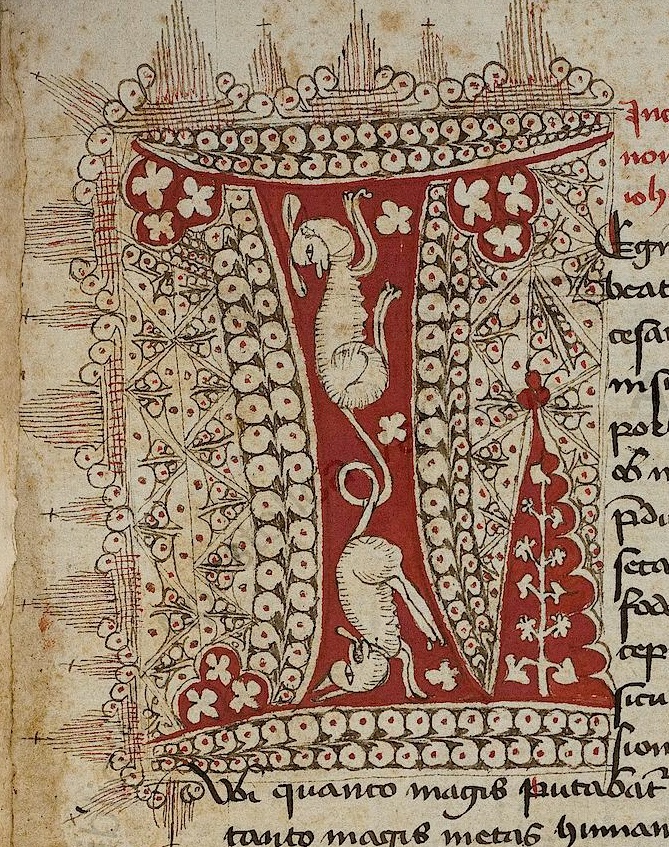 I
Inc
non
ioh
Egr
beat
cesa
por
seta
cep
sicu
sion
Vbi quanto magis putabat
tanto magis metas human